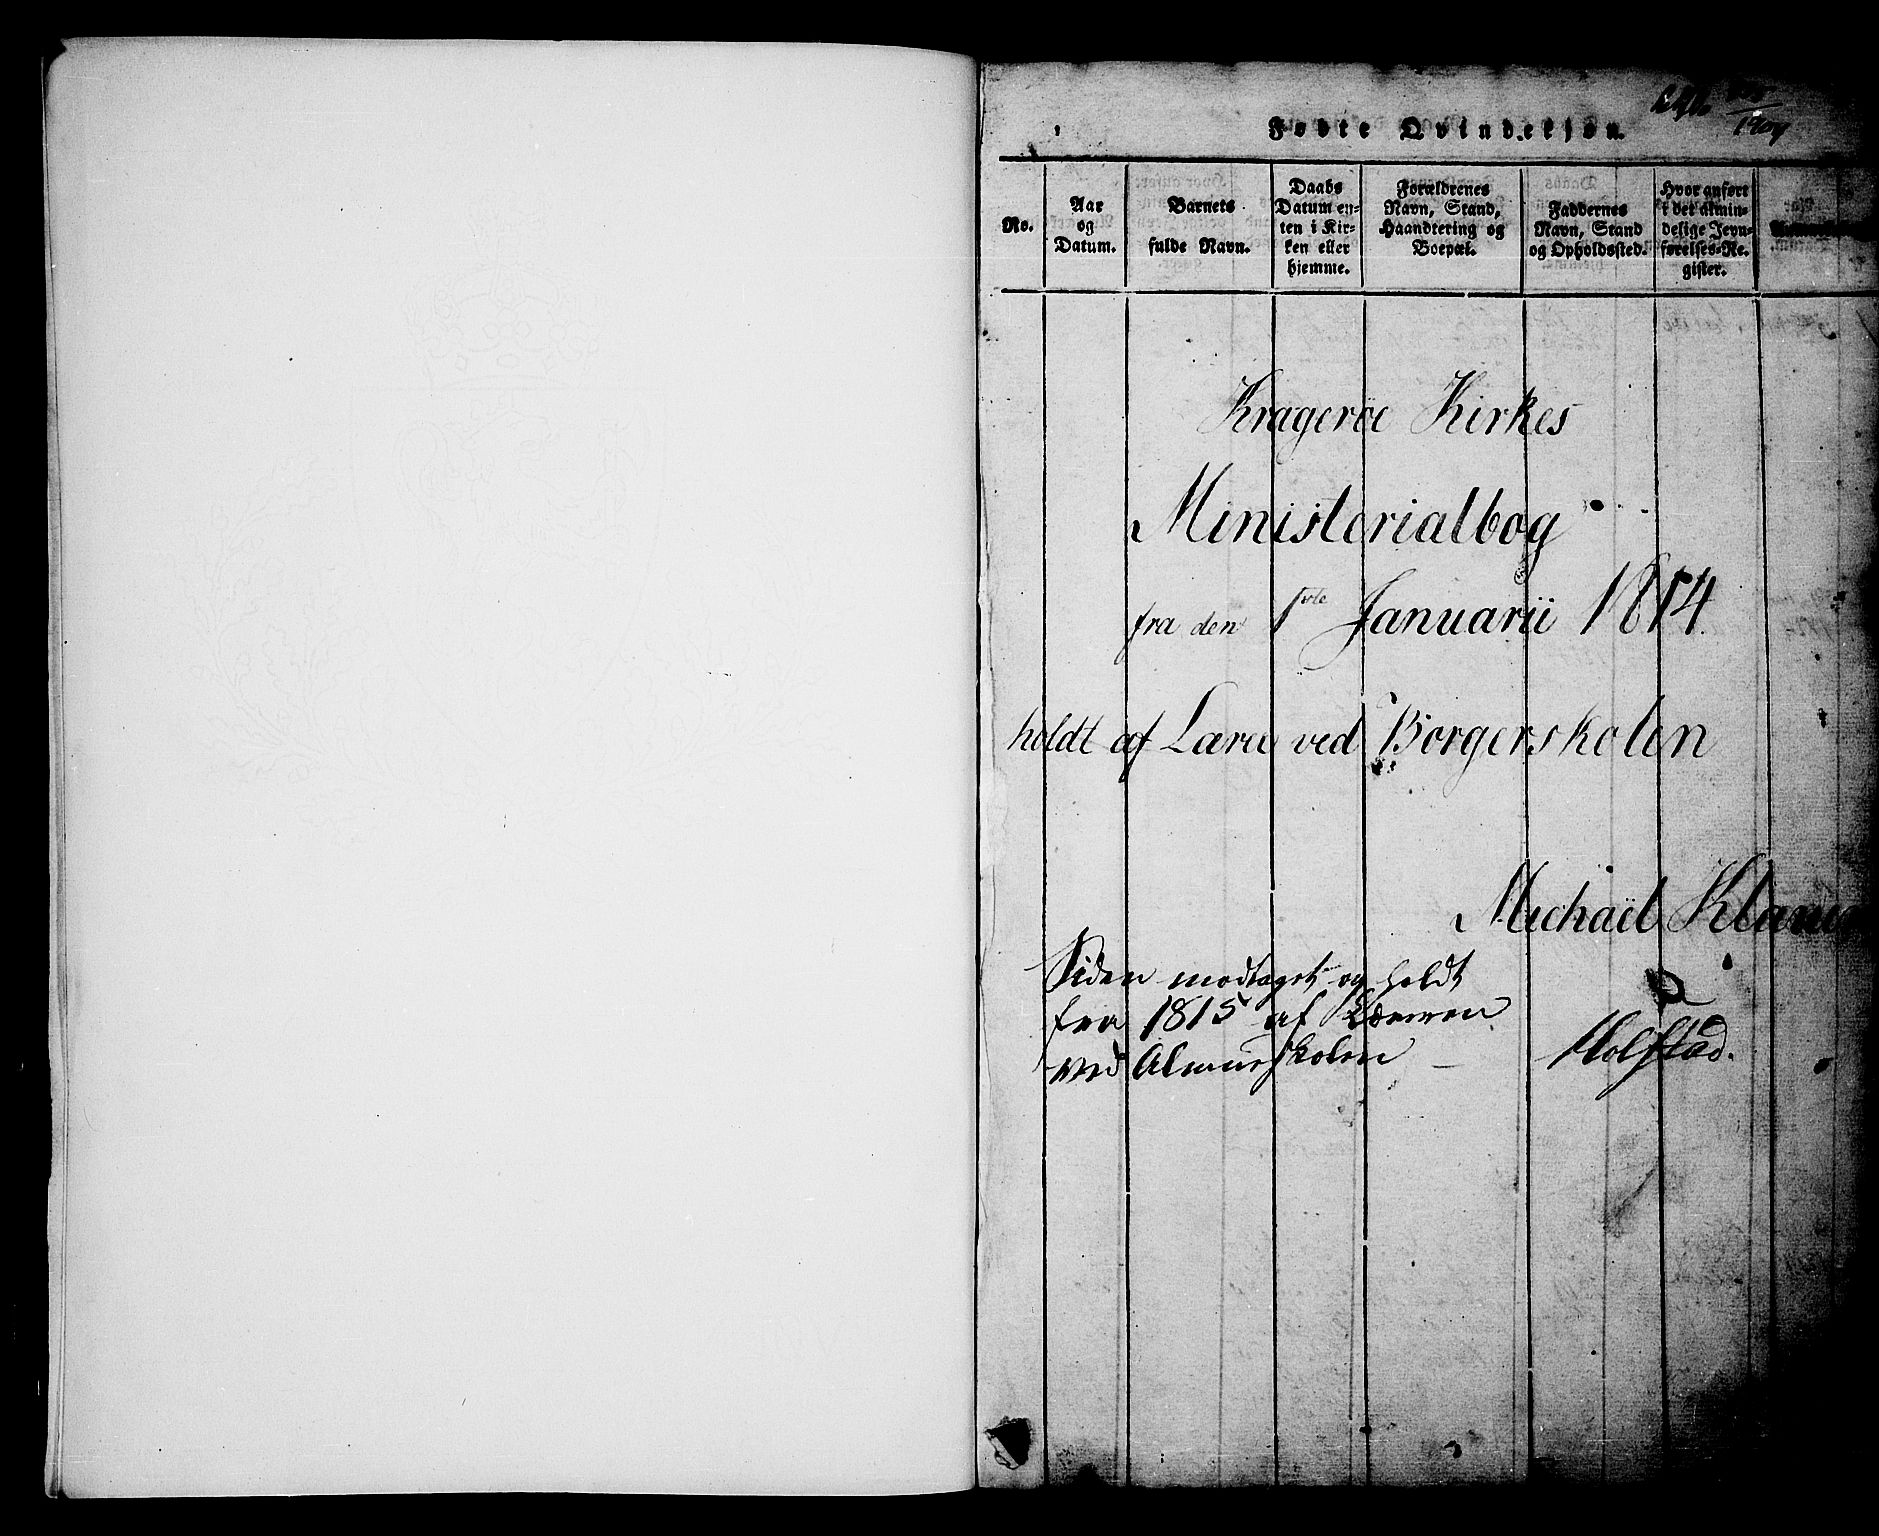 Fødte Qvindekjøn.
1904
No.
Aar
og
Datum.
Barnets
fulde Navn.
Daabs
Datum en-
ten i Kir-
ken eller
hjemme.
Forældrenes
Navn, Stand,
Haandtering og
Boepæl.
Faddernes
Navn, Stand
og Opholdssted.
Hvor anført
i det almin-
delige Jevn-
førelses-Re-
gister.
Kragerøe Kirkes
Ministerialbog
fra den 1ste Januarii 1814.
holdt af Lærer ved Borgerskolen
Michaël
Siden modtaget og holdt
fra 1815 af Læreren
ved Almueskolen
Holfstad.